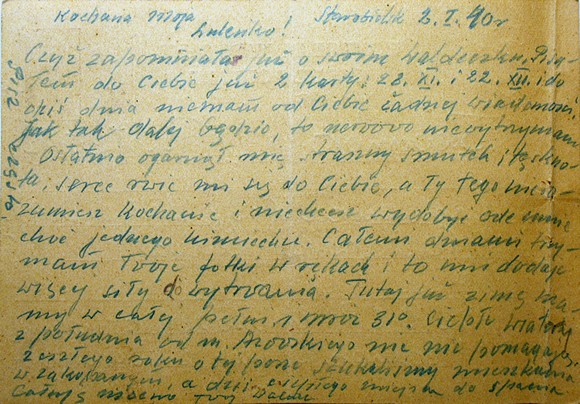 Kochana moja Lulenko! Starobielsk 2.I.40r
Czyż zapomniałaś już o swoim Waldeczku. Pisa-
łem do Ciebie już 2 karty: 28.XI. i 22.XII. i do
dziś dnia niemam od Ciebie żadnej wiadomości.
Jak tak dalej będzie, to nerwowo niewytrzymam
Ostatnio ogarnął mię straszny smutek i tęskno-
ta, serce rwie mi się do Ciebie, a Ty tego niero-
zumiesz Kochanie i niechcesz wydobyć ode mnie
choć jednego uśmiechu. Całemi dniami trzy-
mam Twoje fotki w rękach i to mi dodaje
więcej siły do wytrwania. Tutaj już zimę ma-
my w całej pełni, mróz 31°. Ciepłe wiatry
z południa od m. Azowskiego nic nie pomagają.
Zeszłego roku o tej porze szukaliśmy mieszkania
w Zakopanem, a dziś ciepłego miejsca do spania
Całuję mocno Twój Waldek
Pisz często,